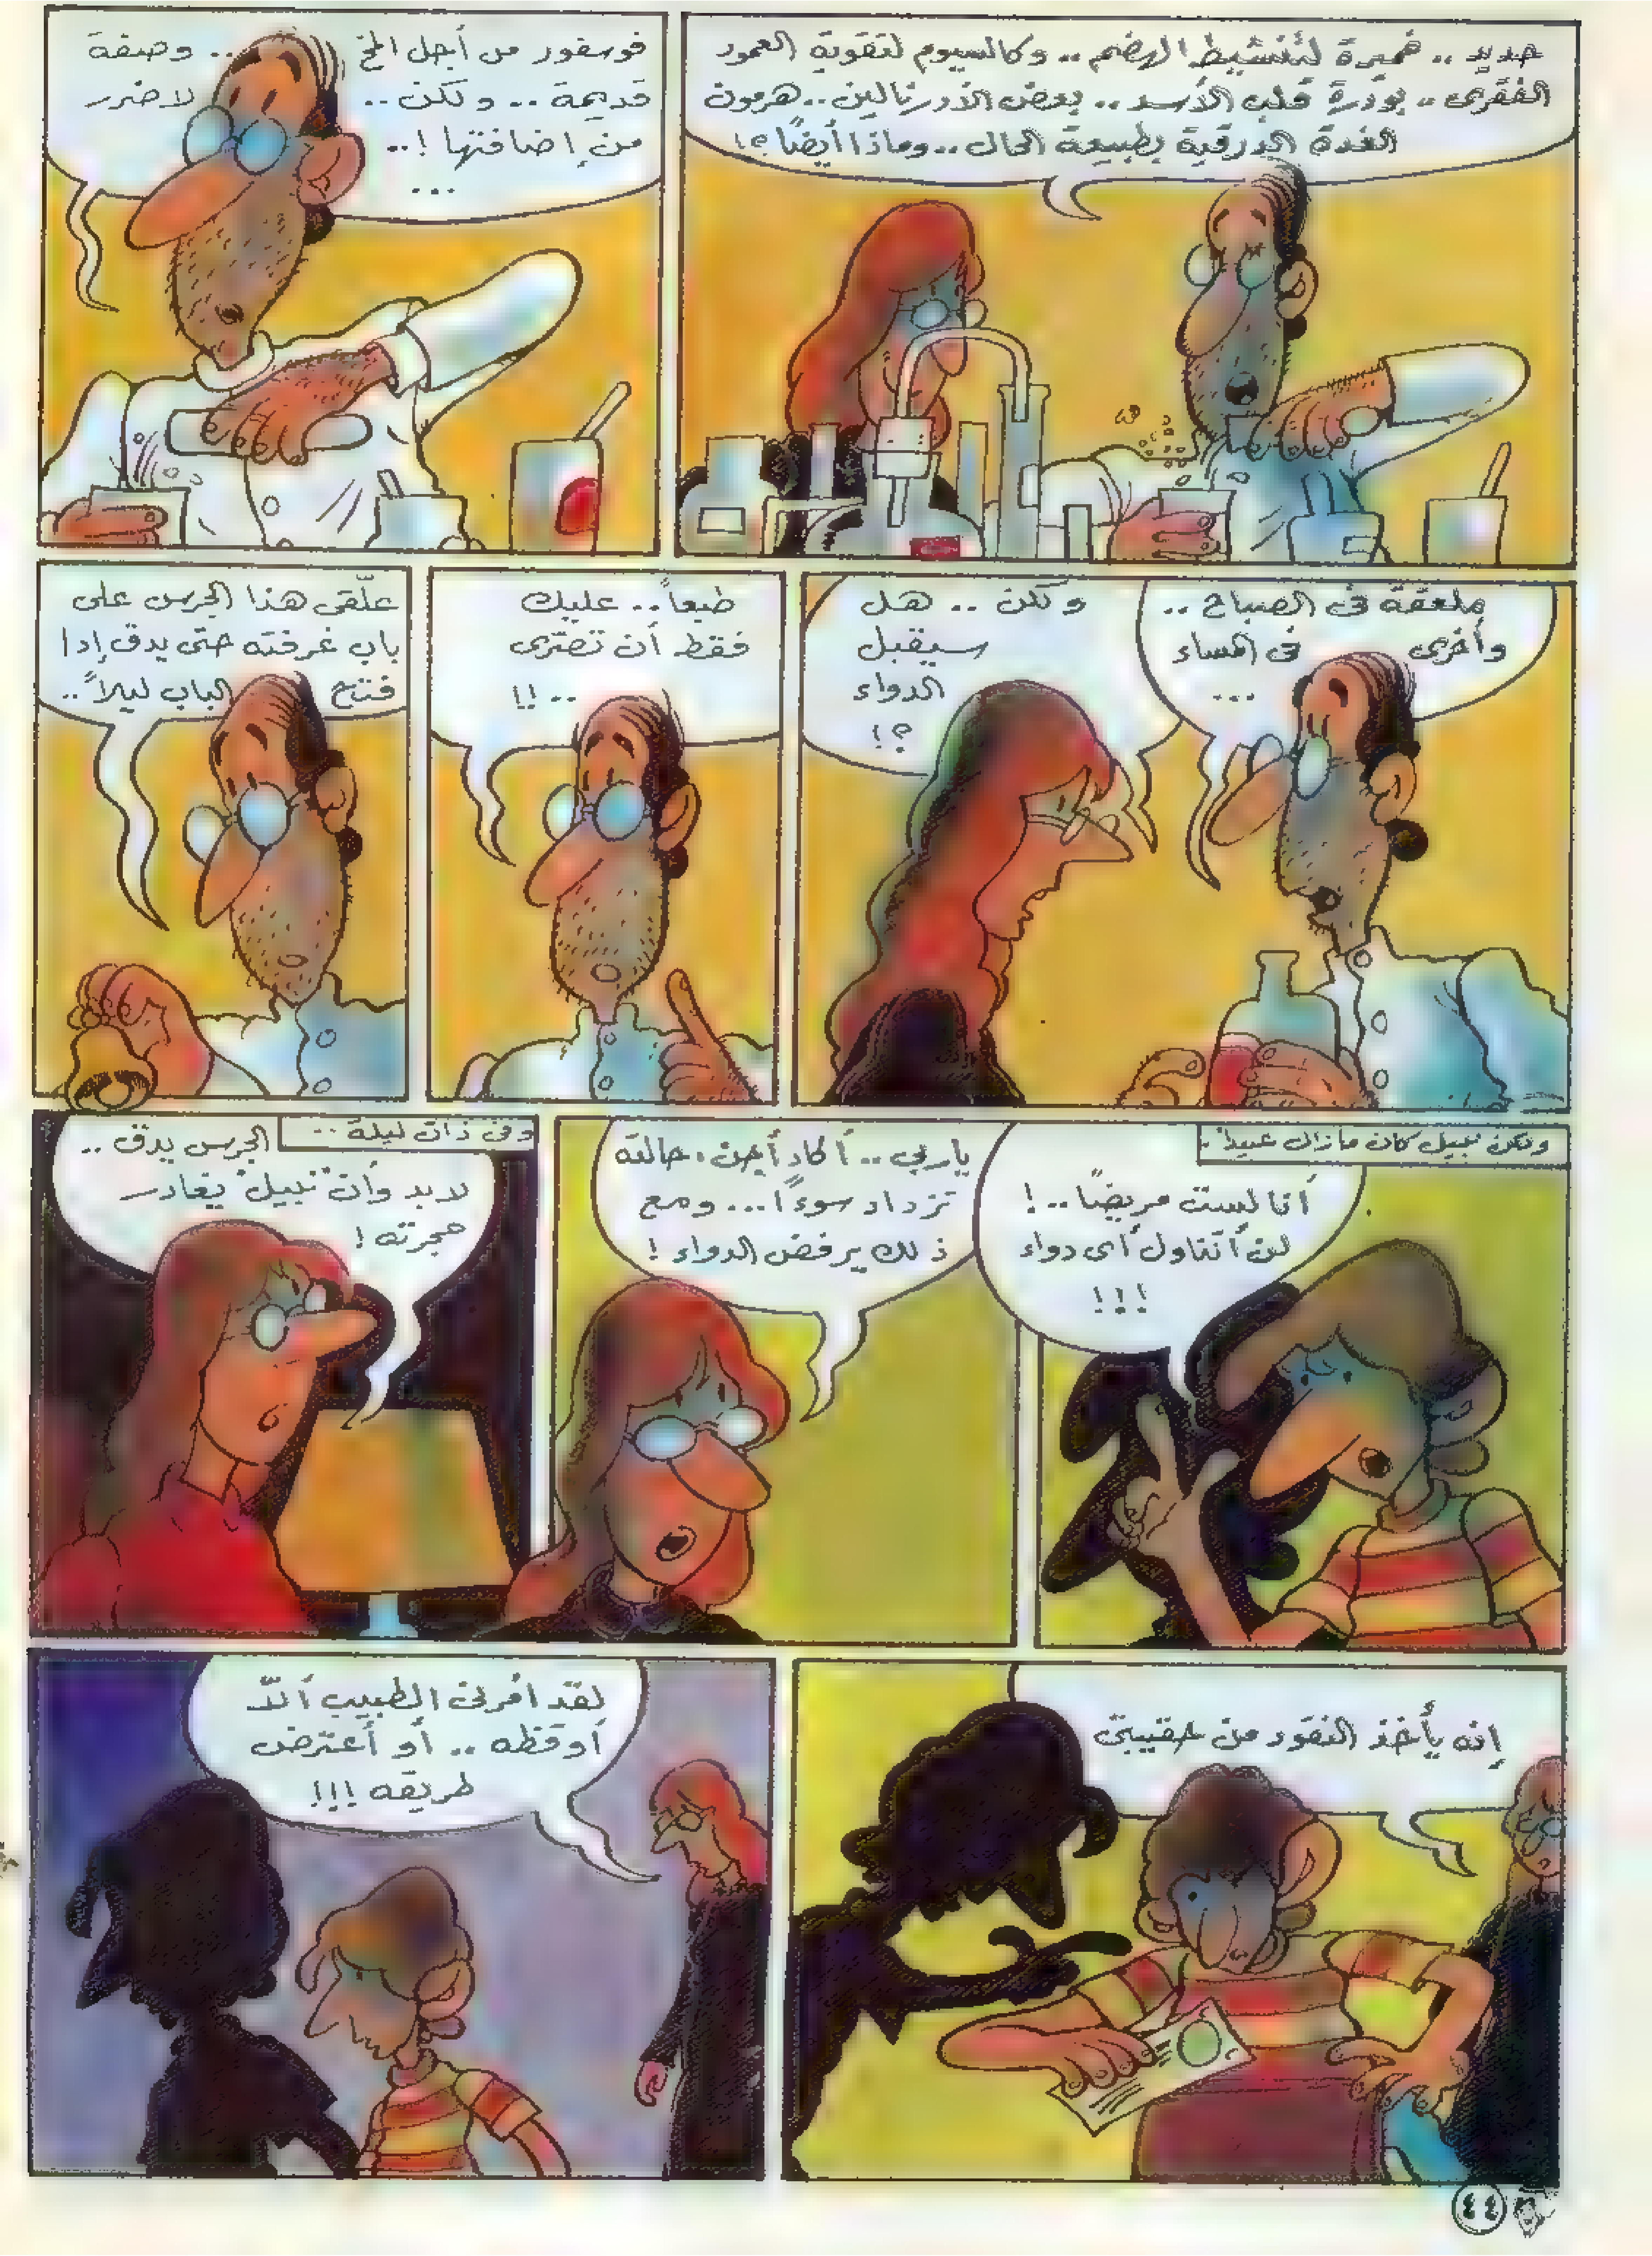 حديد .. خميرة لتنشيط الهضم .. وكالسيوم لتقوية العمود
الفقرى .. بودرة قلب الأسد .. بعض الأدرنالين .. هرمون
الغدة الدرقية بطبيعة الحال .. وماذا أيضاً ؟!
فوسفور من أجل المخ .. وصفة
قديمة .. ولكن .. لا ضرر
من إضافتها ! ..
...
ملعقة فى الصباح ..
وأخرى فى المساء
...
ولكن .. هل
سيقبل
الدواء
؟!
طبعاً .. عليك
فقط أن تصرى
.. !!
علّقى هذا الجرس على
باب غرفته حتى يدق إذا
فتح الباب ليلاً ..
ولكن نبيل كان مازال عنيداً ..
أنا لست مريضاً .. !
لن أتناول أى دواء
!!!
ياربى .. أكاد أجن . حالته
تزداد سوءاً ... ومع
ذلك يرفض الدواء !
وفى ذات ليلة ..
الجرس يدق ..
لابد وأن "نبيل" يغادر
حجرته !
إنه يأخذ النقود من حقيبتى
لقد أمرنى الطبيب ألاّ
أوقظه .. أو أعترض
طريقه !!!
٤٤